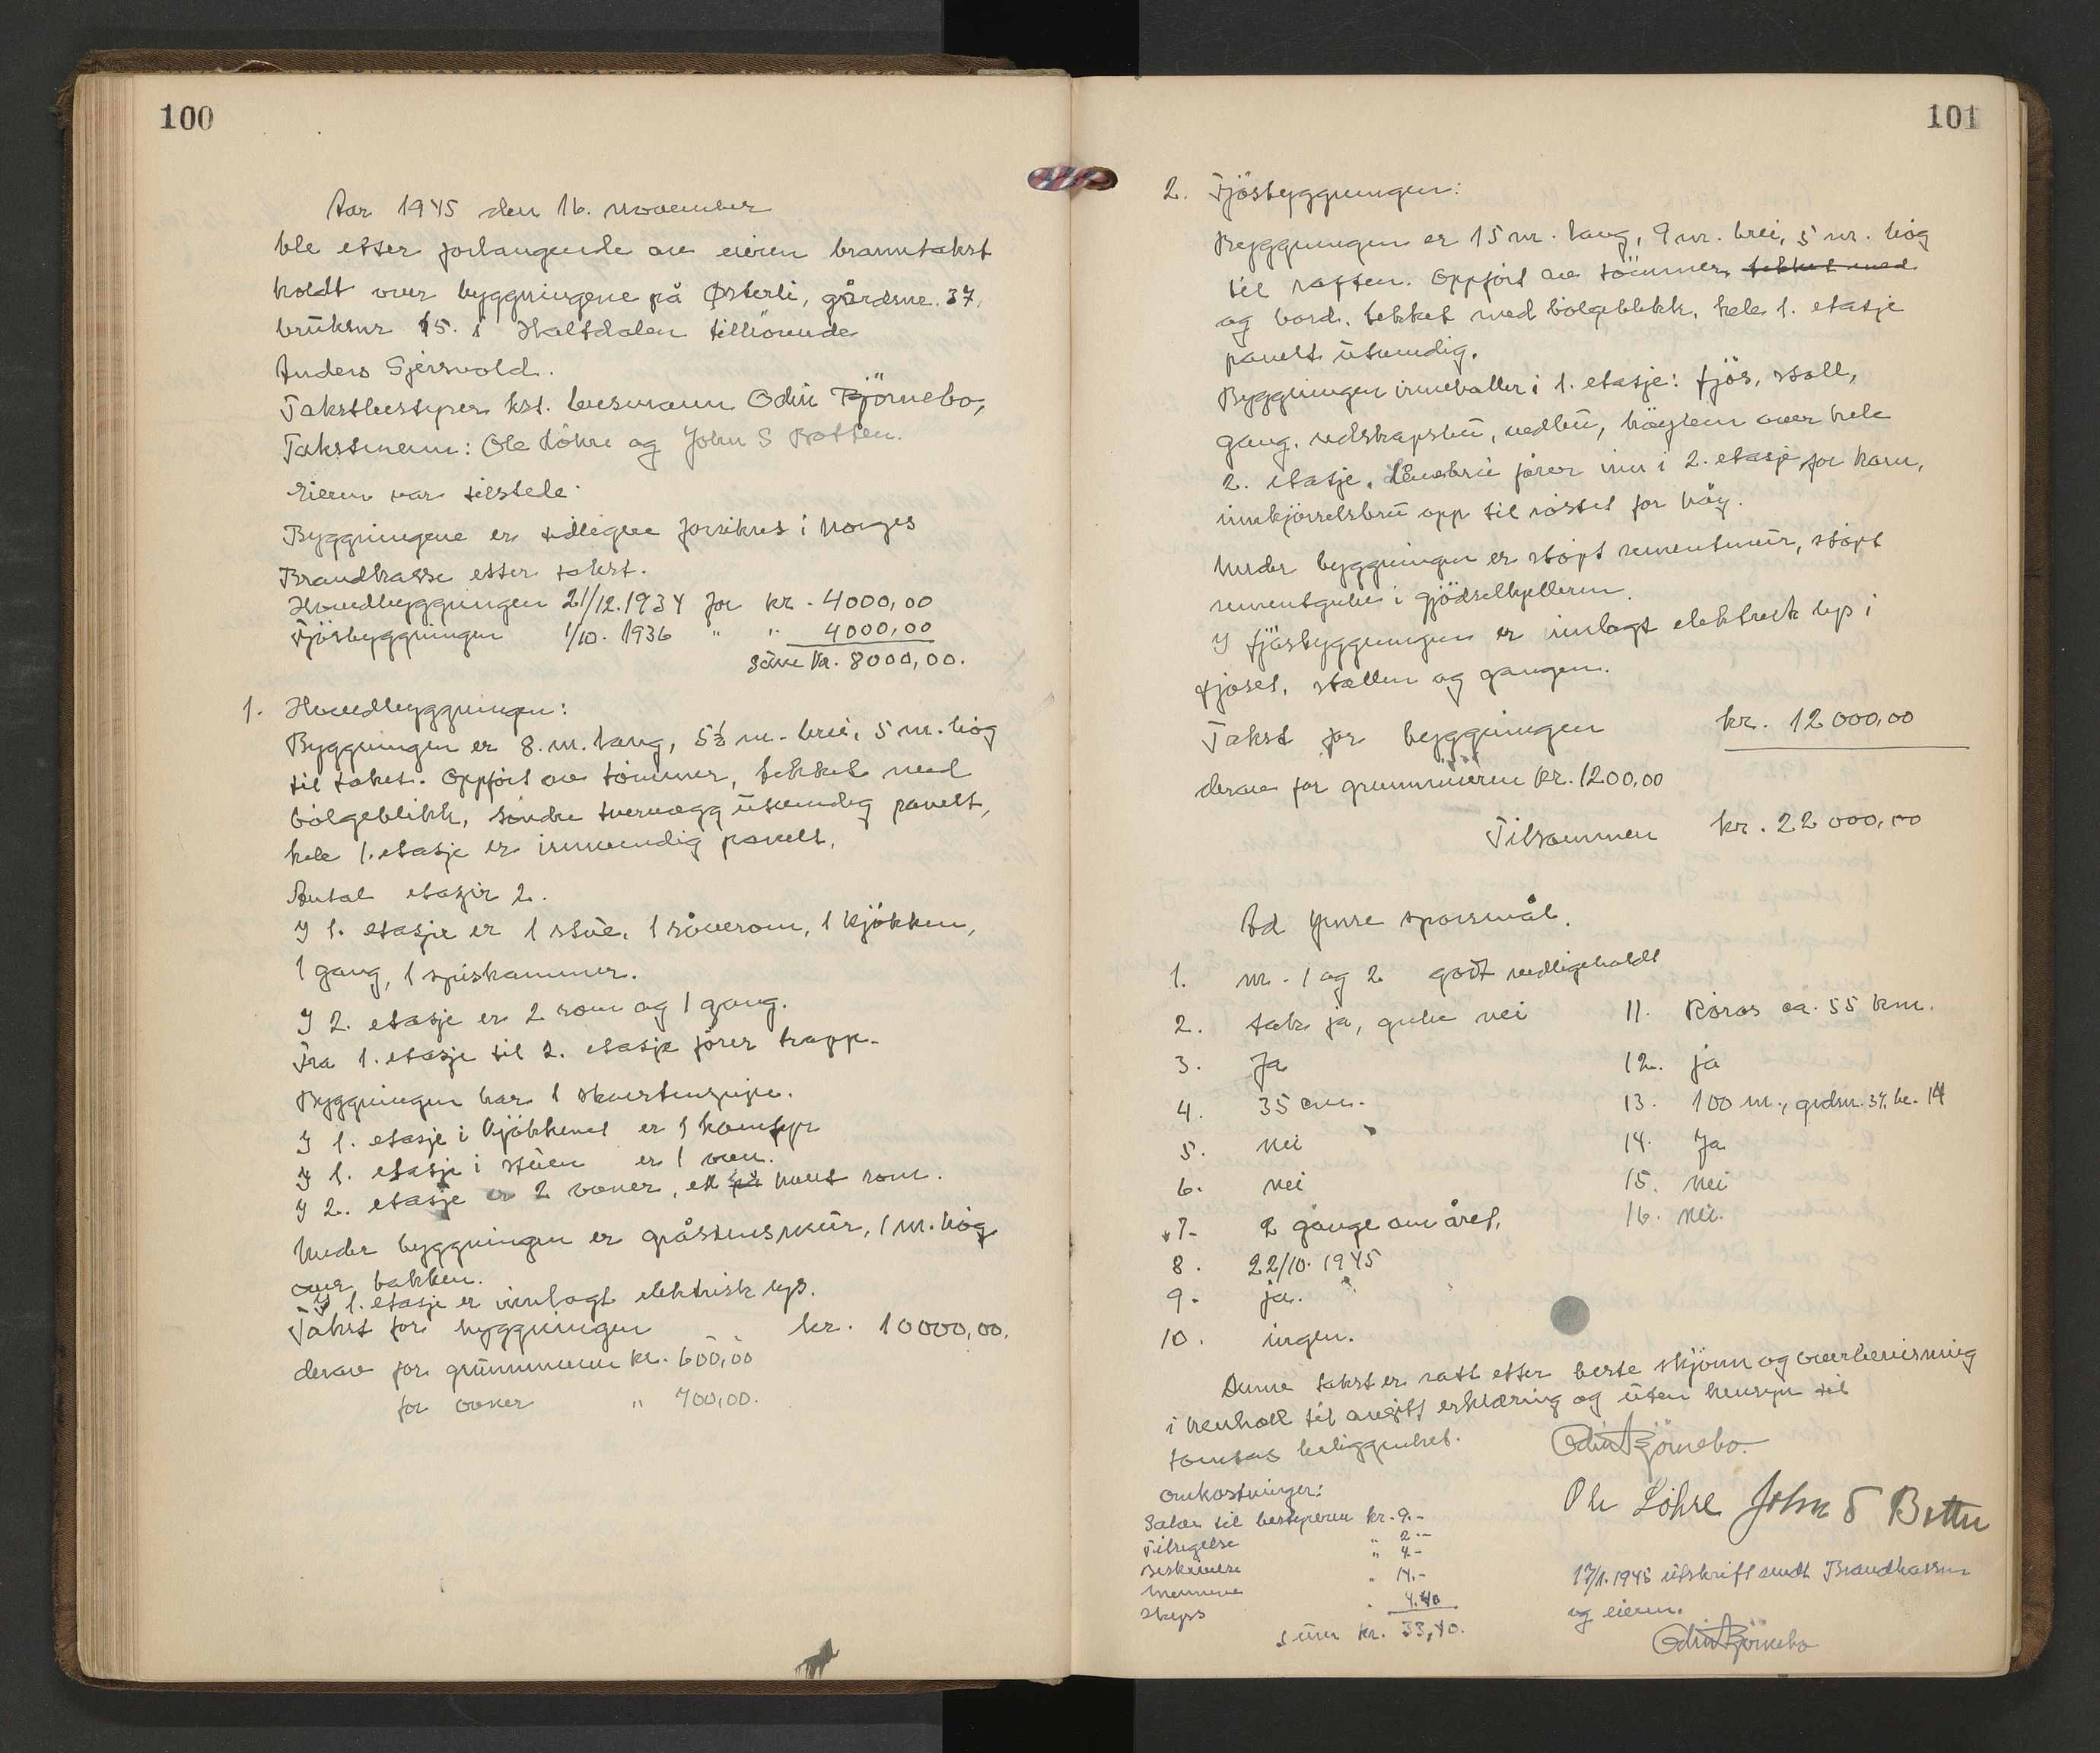 100
Aar 1945 den 16. november
ble etter forlangende av eieren branntakst
holdt over byggningene på Østerli, gårdsnr. 37,
bruksnr 15. i Haltdalen tilhörende
Anders Gjersvold.
Takstbestyrer kst. lensmann Odin Björnebo,
Takstmenn: Ole Löhre og John S Botten.
Eieren var tilstede.
Byggningene er tidligere forsikret i Norges
Brandkasse etter takst.
Hovedbyggningen 21/12.1934 for kr. 4000,00
Fjösbyggningen 1/10. 1936 " " 4000,00
Sum kr. 8000,00.
1. Hovedbyggningen:
Byggningen er 8. m. lang, 5½ m. brei, 5 m. hög
til taket. Oppfört av tömmer, tekket med
bölgeblikk, söndre tvervegg utvendig panelt,
hele 1. etasje er innvendig panelt.
Antal etasjer 2.
I 1. etasje er 1 stue, 1 soverom, 1 kjökken,
1 gang, 1 spiskammer.
I 2. etasje er 2 rom og 1 gang.
Fra 1. etasje til 2. etasje förer trapp.
Byggningen har 1 skorstenspipe.
I 1. etasje i kjökkenet er 1 komfyr
I 1. etasje i stuen er 1 ovn.
I 2. etasje er 2 ovner, ett på hvert rom.
Under byggningen er gråstensmur, 1 m. hög
over bakken.
I 1. etasje er innlagt elektrisk lys.
Takst for byggningen kr. 10000,00.
derav for grunnmuren kr. 600,00
for ovner " 700,00.
101
2. Fjösbyggningen:
Byggningen er 15 m. lang, 9 m. brei, 5 m. hög
til raften. Oppfört av tömmer, tekket med
og bord, tekket med bölgeblikk, hele 1. etasje
panelt utvendig.
Byggningen inneholler i 1. etasje: fjös, stall,
gang, redskapsbu, vedbu, höylem over hele
2. etasje. Låvebru förer inn i 2. etasje for korn,
innkjörselsbru opp til röstet for höy.
Under byggningen er stöpt sementmur, stöpt
sementgulv i gjödselkjelleren.
I fjösbyggningen er innlagt elektrisk lys i
fjöset, stallen og gangen.
Takst for byggningen kr. 12000,00
derav for grunnmuren kr. 1200,00
Tilsammen kr. 22000,00
Ad ymse spörsmål.
1. nr. 1 og 2 godt vedligeholdt
2. tak ja, gulv nei
3. Ja
4. 35 cm.
5. nei
6. nei
7. 2 gange om året.
8. 22/10. 1945
9. ja.
10. ingen.
11. Röros ca. 55 km.
12. ja
13. 100 m., grdsnr. 37, br. 14
14. Ja
15. nei
16. nei.
Denne takst er satt etter beste skjönn og overbevisning
i henholl til avgitt erklæring og uten hensyn til
tomtas beliggenhet. Odin Björnebo.
Ole Löhre John S Botten
Omkostninger:
Salær til bestyreren kr. 9.-
Tilsigelse " 2.-
Beskrivelse " 4.-
Mennene " 14.-
Skyss " 4.40
Sum kr. 33,40.
17/1. 1945 utskrift sendt Brandkassen
og eieren.
Odin Björnebo